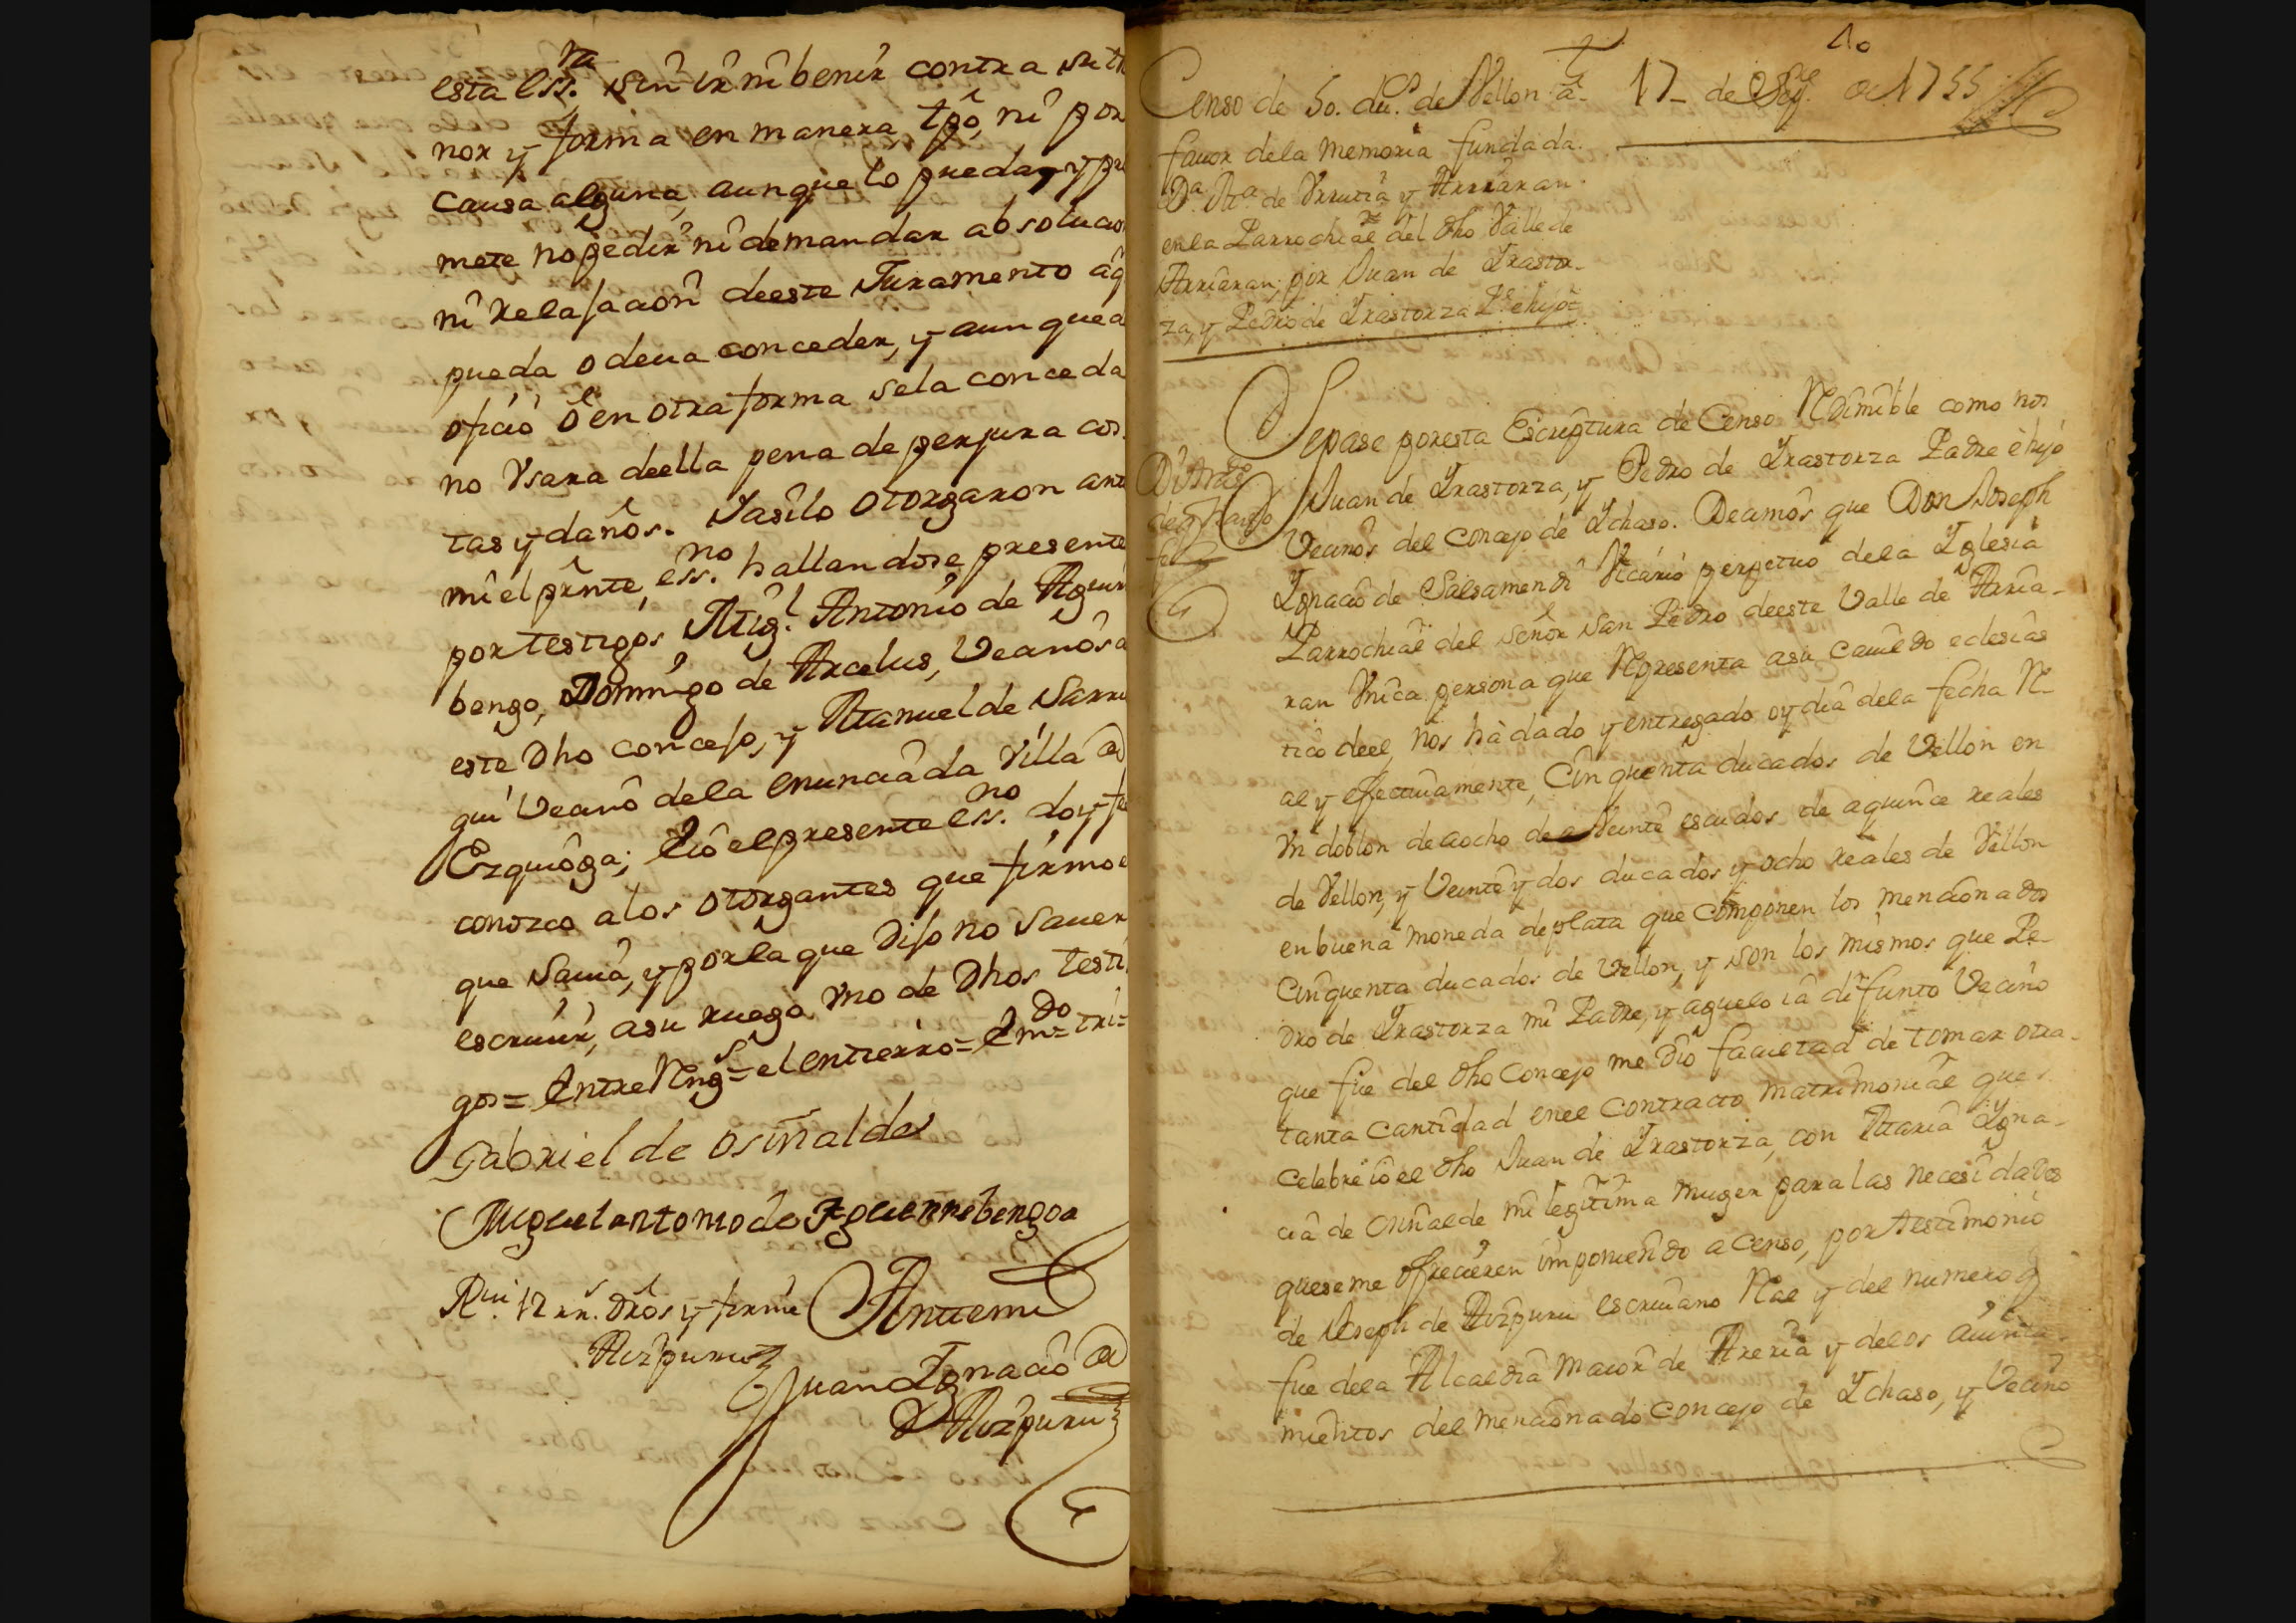 esta ess.ra sin ir ni benir contra su th
nor y forma en manera tpô, ni por
causa alguna, aunque lo pueda, y pro
mete no pedir ni demandar absolucion
ni relajacion deeste Juramento aq
pueda o deua conceder, y aunque de
oficio ô en otra forma sela conceda
no Vsara deella pena de perjura cos
tas y daños. Iasilo otorgaron ante
mi el pnnte, ess.no hallandose presente
por testigos Mig.l Antonio de Aguirre
bengo, Domingo de Arcelus, Vecinos de
este Dho concejo, y Manuel de Sarri
gui Vecino dela enunciada Villa de
Ezquioga; E io el presente ess.no doy fe
conozco alos otorgantes que firmo el
que Sauia, y por la que Dijo no Sauer
escriuir, asu ruego vno de Dhos testi
gos = Entre Reng.s = el entierro = Em.do = tri =
Gabriel de osinalde
Miguel antonio de Aguirrebengoa
R.ui 12 rr.s dros y firmé Antemi
Aizpuru
Juan Ignacio de
Aizpuru
40
Censo de 50. du.s de Vellon a
fauor dela Memoria fundada.
D.a M.a de Vrrutia y Arriaran.
en la Parrochial del dho Valle de
Arriaran; por Juan de Irastor-
za, y Pedro de Irastorza P.e e hijo
17 de de 1755
Sepase por esta Escriptura de Censo Redimible como nos
Juan de Irastorza, y Pedro de Irastorza Padre è hijo
Vecinos del concejo de Ichaso. Decimos que Don Joseph
Ignacio de Salsamendi Vicario perpetuo dela Iglesia
Parrochial del señor San Pedro deeste Valle de Arria-
ran Vnica persona que Representa asu cauildo eclesias
tico deel, nos hà dado y entregado oy dia dela fecha Re-
al y efectiuamente, Cinquenta ducados de Vellon en
Vn doblon de aocho de a Veinte escudos de aquince reales
de Vellon, y Veinte y dos ducados y ocho reales de Vellon
en buena moneda de plata que componen los mencionados
Cinquenta ducados de Vellon, y son los mismos que Pe-
dro de Irastorza mi Padre, y aguelo iâ difunto Vecino
que fue del dho Concejo me dio facultad de tomar otra
tanta cantidad enel contracto matrimonial que
celebre io el dho Juan de Irastorza, con Maria Igna-
cia de osinalde mi legitima muger para las necesidades
queseme ofrecieren imponiendo a censo, por testimonio
de Joseph de Aizpuru escriuano Real y del numero q
fue dela Alcaldia maior de Areria y delos aiunta
mientos del mencionado concejo de Ichaso, y Vecino